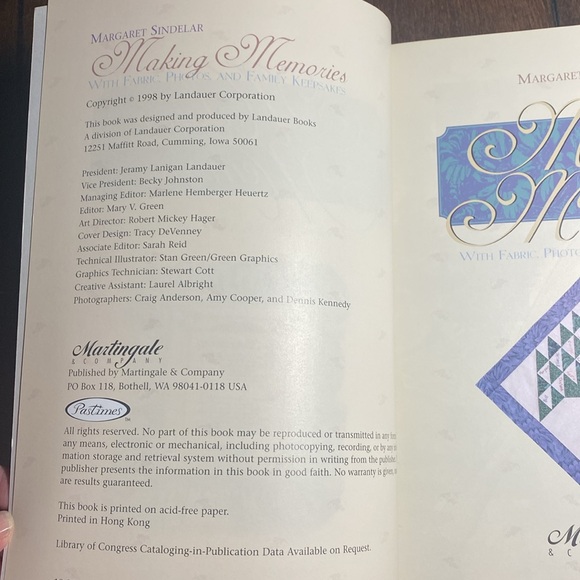 MARGARET SINDELAR
Making Memories
WITH FABRIC, PHOTOS, AND FAMILY KEEPSAKES
Copyright © 1998 by Landauer Corporation
This book was designed and produced by Landauer Books
A division of Landauer Corporation
12251 Maffitt Road, Cumming, Iowa 50061
President: Jeramy Lanigan Landauer
Vice President: Becky Johnston
Managing Editor: Marlene Hemberger Heuertz
Editor: Mary V. Green
Art Director: Robert Mickey Hager
Cover Design: Tracy DeVenney
Associate Editor: Sarah Reid
Technical Illustrator: Stan Green/Green Graphics
Graphics Technician: Stewart Cott
Creative Assistant: Laurel Albright
Photographers: Craig Anderson, Amy Cooper, and Dennis Kennedy
Martingale
& COMPANY
Published by Martingale & Company
PO Box 118, Bothell, WA 98041-0118 USA
Pastimes™
All rights reserved. No part of this book may be reproduced or transmitted in any
any means, electronic or mechanical, including photocopying, recording, or by any
mation storage and retrieval system without permission in writing from the
publisher presents the information in this book in good faith. No warranty is given,
are results guaranteed.
This book is printed on acid-free paper.
Printed in Hong Kong
Library of Congress Cataloging-in-Publication Data Available on Request.
MARGARET
M
M
WITH FABRIC, PHOTO
M
& CO